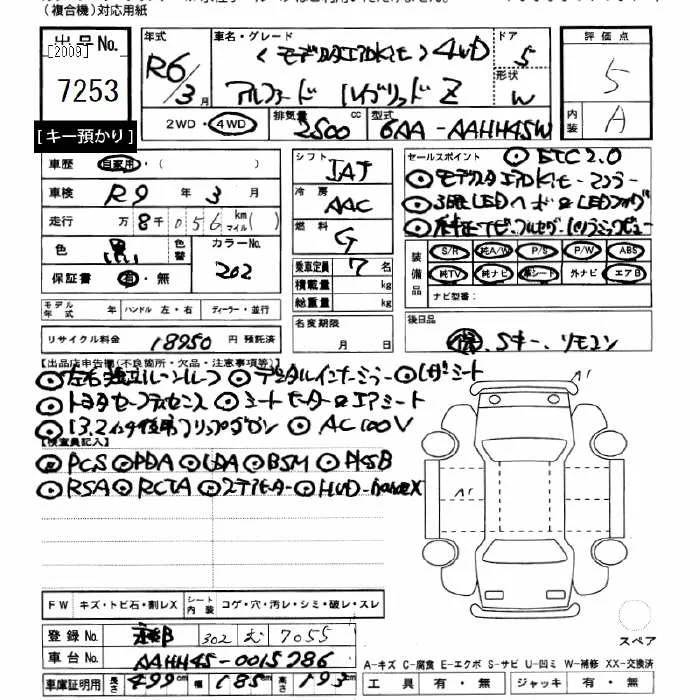 (複合機)対応用紙
出品No.
[2009]
7253
[キー預かり]
年式
R6/3月
車名・グレード
(モデリスタエアロKit) 4WD
アルファード ハイブリッド Z
ドア
5
形状
W
評価点
5
内装
A
2WD・4WD
排気量
2500 cc
型式
6AA-AAHH45W
車歴
自家用・( )
車検
R9年3月
走行
万8千056km
マイル( )
色
黒
色替
カラーNo.
202
保証書
有・無
モデル年式 年
ハンドル 左・右
ディーラー・並行
リサイクル料金
18950円 預託済
シフト
IAT
冷房
AAC
燃料
G
乗車定員
7名
積載量 kg
総重量 kg
名変期限
月 日
セールスポイント
ETC2.0
モデリスタエアロKit
3眼LEDヘッド&LEDフォグ
装備品
S/R 純A/W P/S P/W ABS
純TV 純ナビ 革シート 外ナビ エアB
ナビ型番:
後日品
保、Sキー、リモコン
【出品店申告欄(不良箇所・欠品・注意事項等)】
左右独立ムーンルーフ デジタルインナーミラー レザーシート
トヨタセーフティセンス シートヒーター&エアシート
13.2インチ後席フリップダウン AC100V
【検査員記入】
PCS PDA LDA BSM AHSB
RSA RCTA HUD
A'
A'
FW キズ・トビ石・割レX
シート内装 コゲ・穴・汚レ・シミ・破レ・スレ
登録No.
302 む 7055
車台No.
AAHH45-0015286
車庫証明用
長さ 499cm 幅 185cm 高さ 193cm
スペア
A-キズ C-腐食 E-エクボ S-サビ U-凹ミ W-補修 XX-交換済
工具 有・無
ジャッキ 有・無